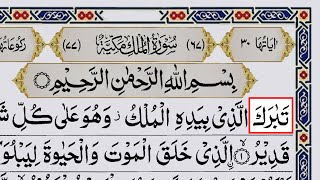 اٰیَاتُهَا ۳۰ (۶۷) سُوْرَةُ الْمُلْكِ مَكِّیَّةٌ (۷۷) رُكُوْعَاتُهَا
بِسْمِ اللّٰهِ الرَّحْمٰنِ الرَّحِیْمِ
تَبٰرَكَ الَّذِیْ بِیَدِهِ الْمُلْكُ ز وَهُوَ عَلٰی كُلِّ
قَدِیْرُ ۙ۝۱ الَّذِیْ خَلَقَ الْمَوْتَ وَالْحَیٰوةَ لِیَبْلُوَ